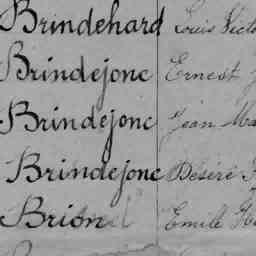 Brindehard Louis Victo
Brindejonc Ernest J
Brindejonc Jean Ma
Brindejonc Désiré
Brion Emile